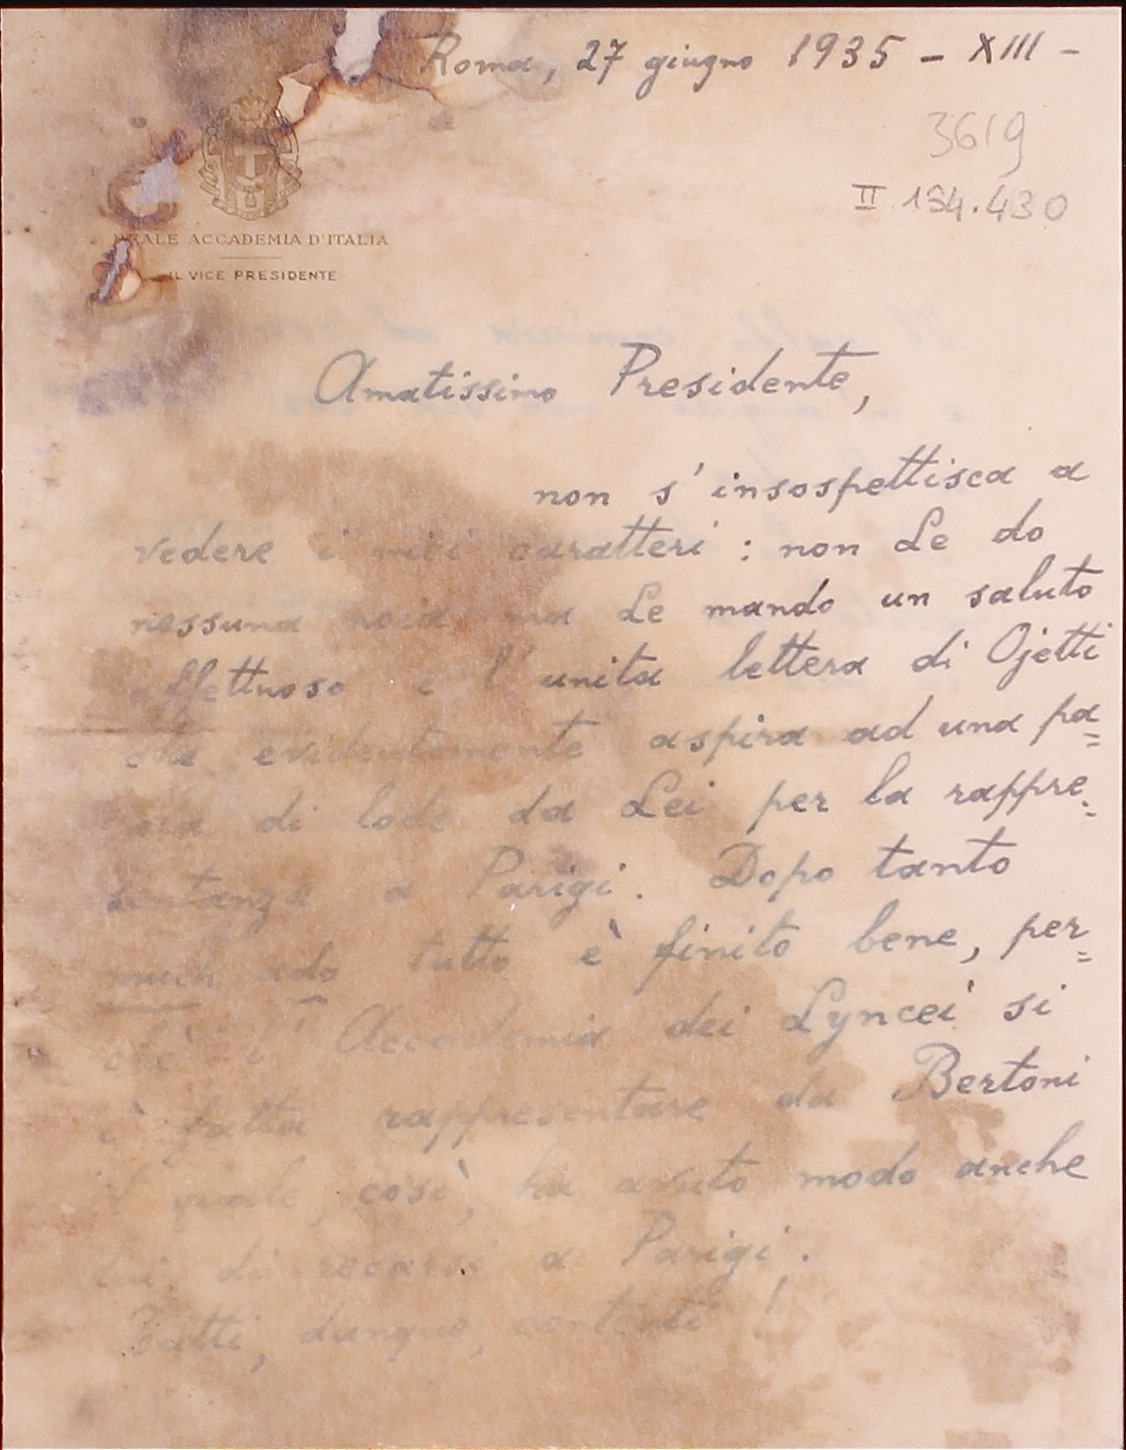 Roma, 27 giugno 1935 - XIII -
3619
II 134.430
REALE ACCADEMIA D'ITALIA
IL VICE PRESIDENTE
Amatissimo Presidente,
non s'insospettisca a
vedere i miei caratteri: non Le do
nessuna noia ma Le mando un saluto
affettuoso e l'unita lettera di Ojetti
che evidentemente aspira ad una pa=
rola di lode da Lei per la rappre=
sentanza a Parigi. Dopo tanto
much ado tutto è finito bene, per=
chè l'Accademia dei Lyncei si
è fatta rappresentare da Bertoni
il quale, così, ha avuto modo anche
lui di recarsi a Parigi.
Tutti, dunque, contenti!